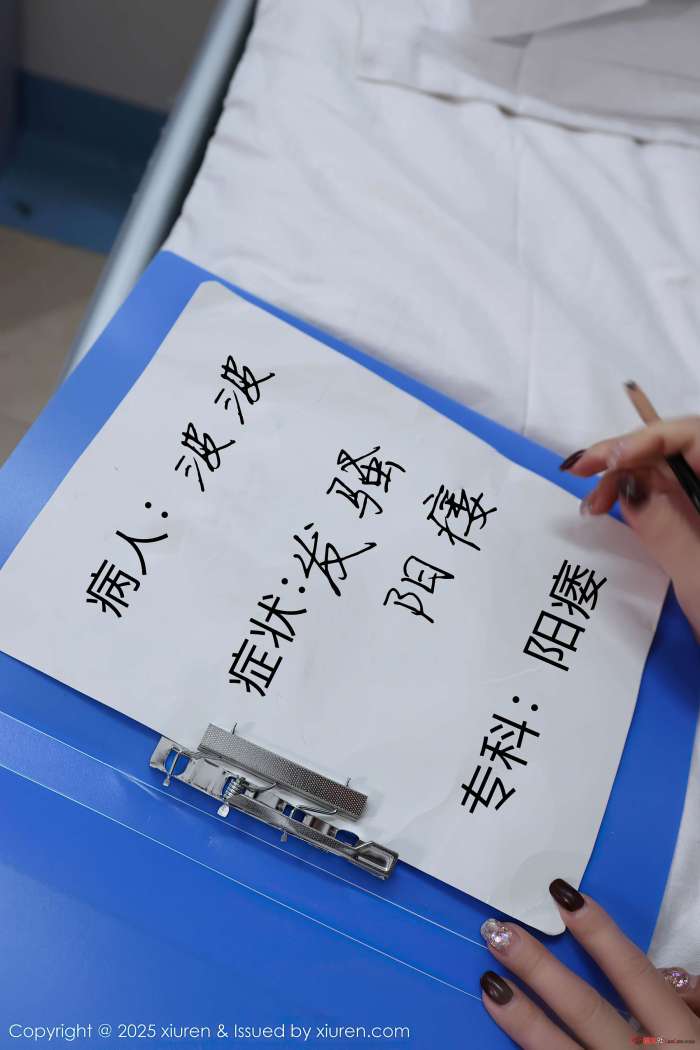 病人：波波
症状：发骚
阳痿
专科：阳痿
Copyright @ 2025 xiuren & Issued by xiuren.com